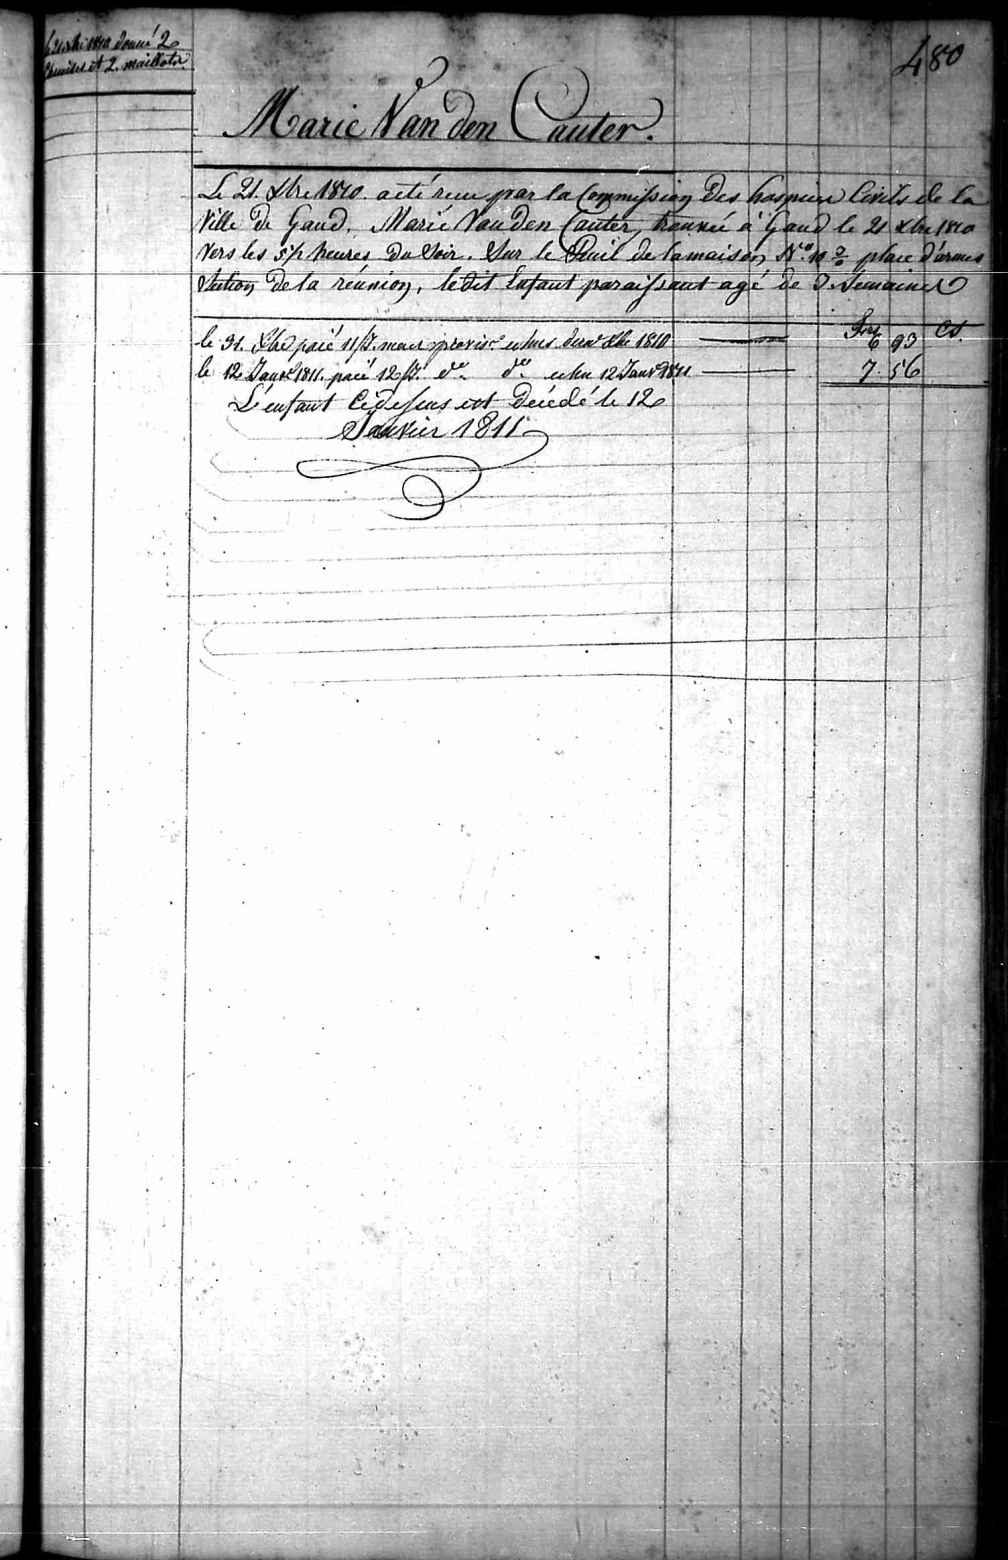 le 21 Xbre 1810 donné 2
Chemises et 2. maillots.
480
Marie Van den Cauter.
Le 21. Xbre 1810. a été recue par la Commission des hospices Civils de la
Ville de Gand, Marie Van den Cauter, trouvée à Gand le 21 Xbre 1810
Vers les 5½ heures du Soir. Sur le Seuil de la maison N.° 10 place d'armes
Section de la réunion, ledit Enfant paraissant agé de 3. Semaines
Frs Cs.
le 31. Xbre paié 11 js. mois 1810 6 93
le 12 Janvr 1811. paié 12 js. do. do. 12 Janvr 1811 7 56
L'enfant Cidessus est Décédé le 12
Janvier 1811